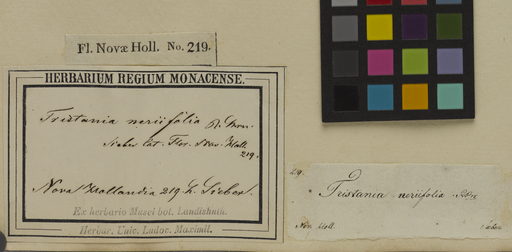 Fl. Novæ Holl. No. 219.
HERBARIUM REGIUM MONACENSE.
Tristania neriifolia R. Brw.
Sieber Flor. Nov. Holl.
219.
Nova Hollandia 219. h. Sieber.
Ex herbario Musei bot. Landishuth.
Herbar. Univ. Ludov. Maximil.
219.
Tristania neriifolia
Nov. Holl.
Sieber